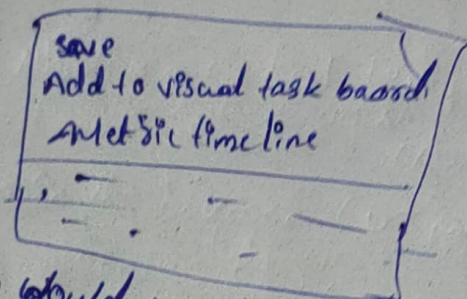 save
Add to visual task baord
Metric timeline
could